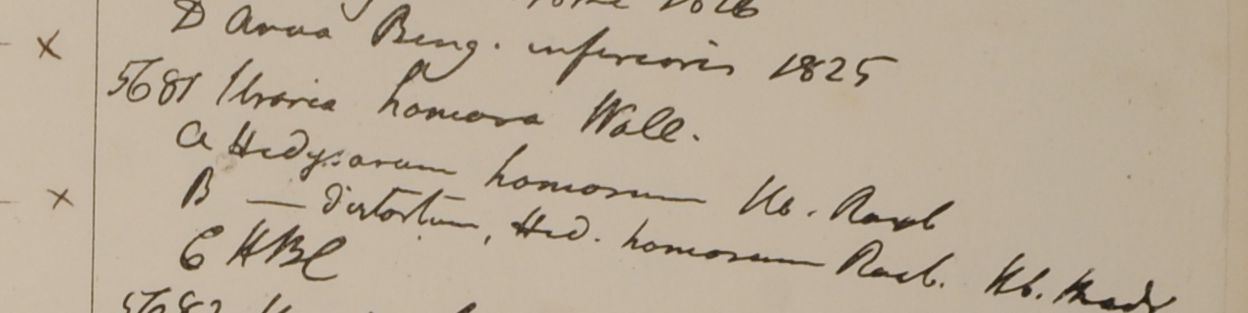 1826
D Avva Beng. inferioris 1825
5681 Uraria hamosa Wall.
a Hedysarum hamosum Hb. Roxb
B — distortum, Hed. hamosum Roxb. Hb. Madr
C HBC
5682